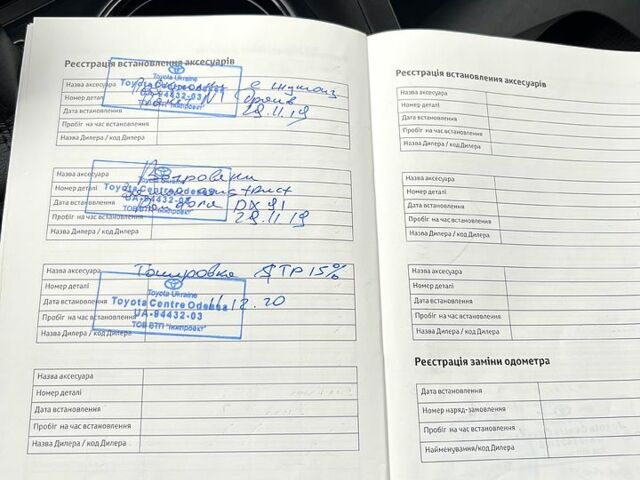 Реєстрація встановлення аксесуарів
Назва аксесуара
Номер деталі
Дата встановлення 29.11.19
Пробіг на час встановлення
Назва Дилера / код Дилера
Toyota Ukraine
Toyota Centre Odessa
UA-94432-03
ТОВ ВТП "Інжпроект"
Назва аксесуара
Номер деталі
Дата встановлення
Пробіг на час встановлення 29.11.19
Назва Дилера / код Дилера
Toyota Ukraine
Toyota Centre Odessa
UA-94432-03
ТОВ ВТП "Інжпроект"
Назва аксесуара Тонировка STP 15%
Номер деталі
Дата встановлення 11.12.20
Пробіг на час встановлення
Назва Дилера / код Дилера
Toyota Ukraine
Toyota Centre Odessa
UA-94432-03
ТОВ ВТП "Інжпроект"
Назва аксесуара
Номер деталі
Дата встановлення
Пробіг на час встановлення
Назва Дилера / код Дилера
Реєстрація встановлення аксесуарів
Назва аксесуара
Номер деталі
Дата встановлення
Пробіг на час встановлення
Назва Дилера / код Дилера
Назва аксесуара
Номер деталі
Дата встановлення
Пробіг на час встановлення
Назва Дилера / код Дилера
Назва аксесуара
Номер деталі
Дата встановлення
Пробіг на час встановлення
Назва Дилера / код Дилера
Реєстрація заміни одометра
Дата встановлення
Номер наряд-замовлення
Пробіг на час встановлення
Найменування/код Дилера